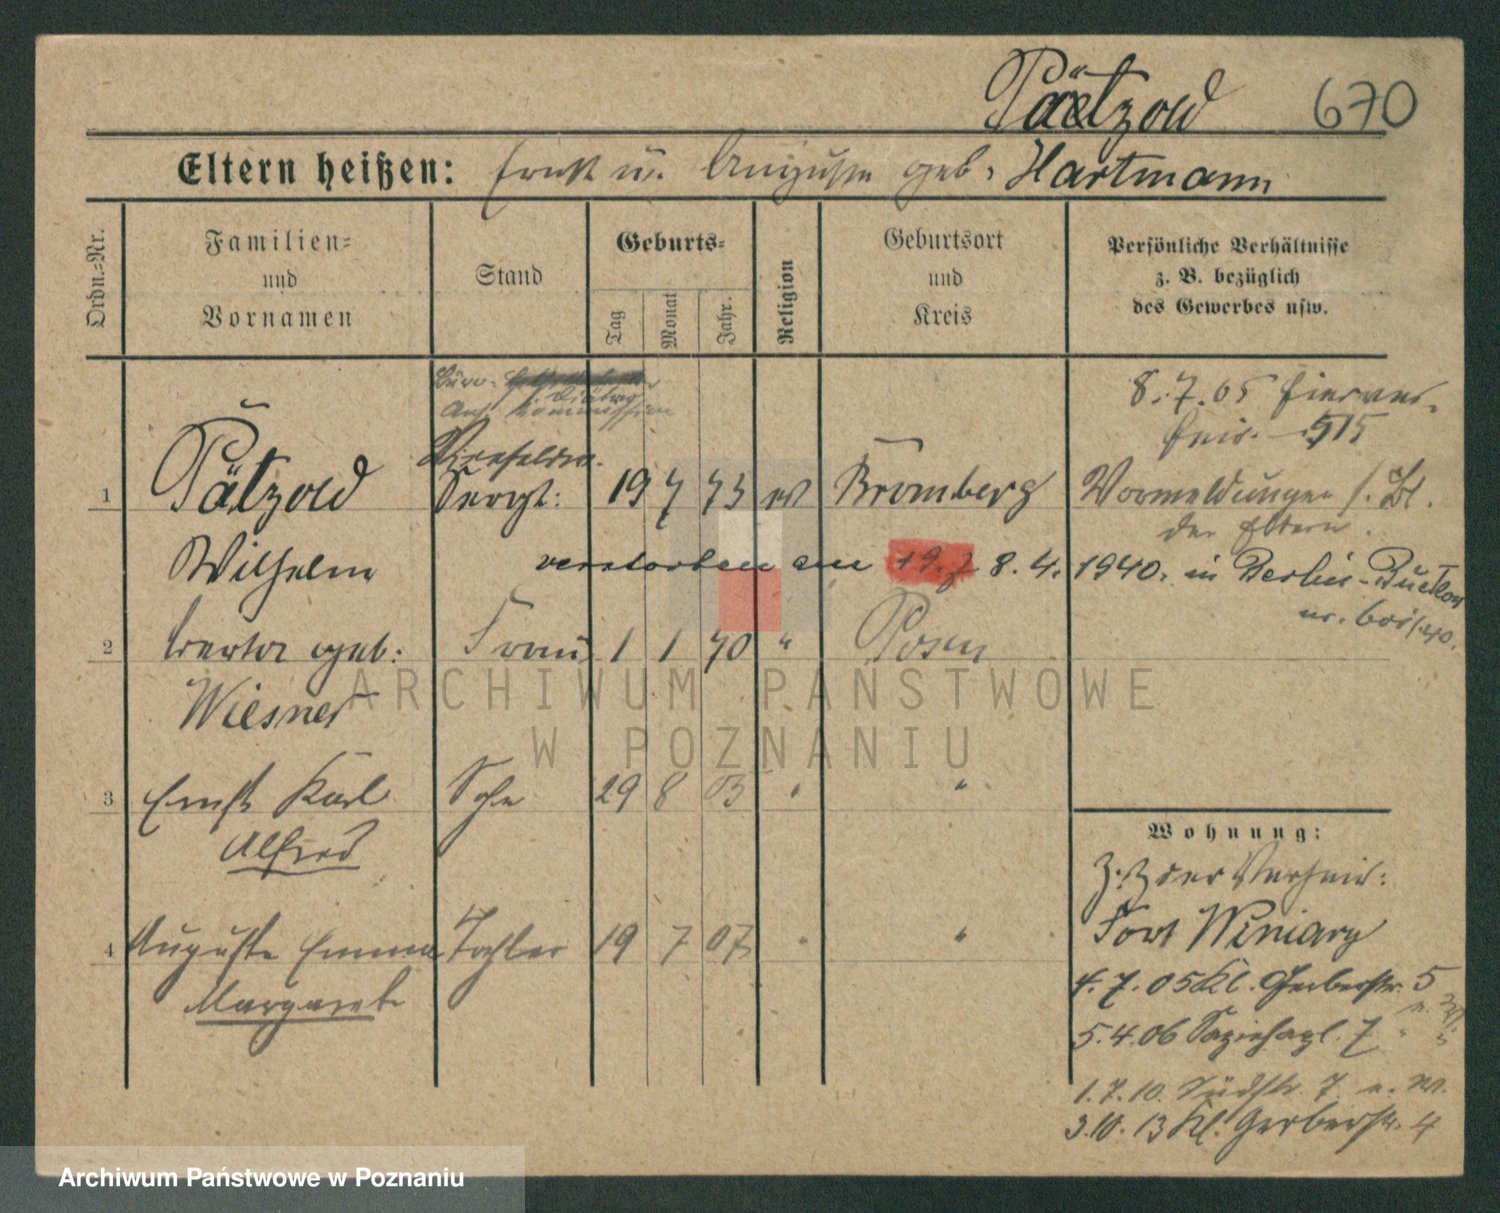 Pätzold 670
Eltern heißen: Ernst u. Auguste geb. Hartmann
Ordn.=Nr.
Familien= und Vornamen
Stand
Geburts=
Tag
Monat
Jahr.
Religion
Geburtsort und Kreis
Persönliche Verhältnisse
z. B. bezüglich
des Gewerbes usw.
8.7.05
515
1 Pätzold Sergt: 19 7 73 ev Bromberg Vormeldungen s. Bl.
der Eltern.
Wilhelm verstorben am 19.7. 8.4. 1940. in Berlin-
2 Berta geb: Frau 1 1 70 " Posen
Wiesner
3 Ernst Karl Sohn 29 8 03 " "
Alfred
Wohnung:
Z. Z. der Verheir:
4 Auguste Emma Tochter 19 7 07 " " Fort Winiary
Margarete
4.7.05 Kl. Gerberstr. 5
5.4.06 7
1.7.10. Südstr. 7
3.10.13 Kl. Gerberstr. 4
ARCHIWUM PAŃSTWOWE
W POZNANIU
Archiwum Państwowe w Poznaniu